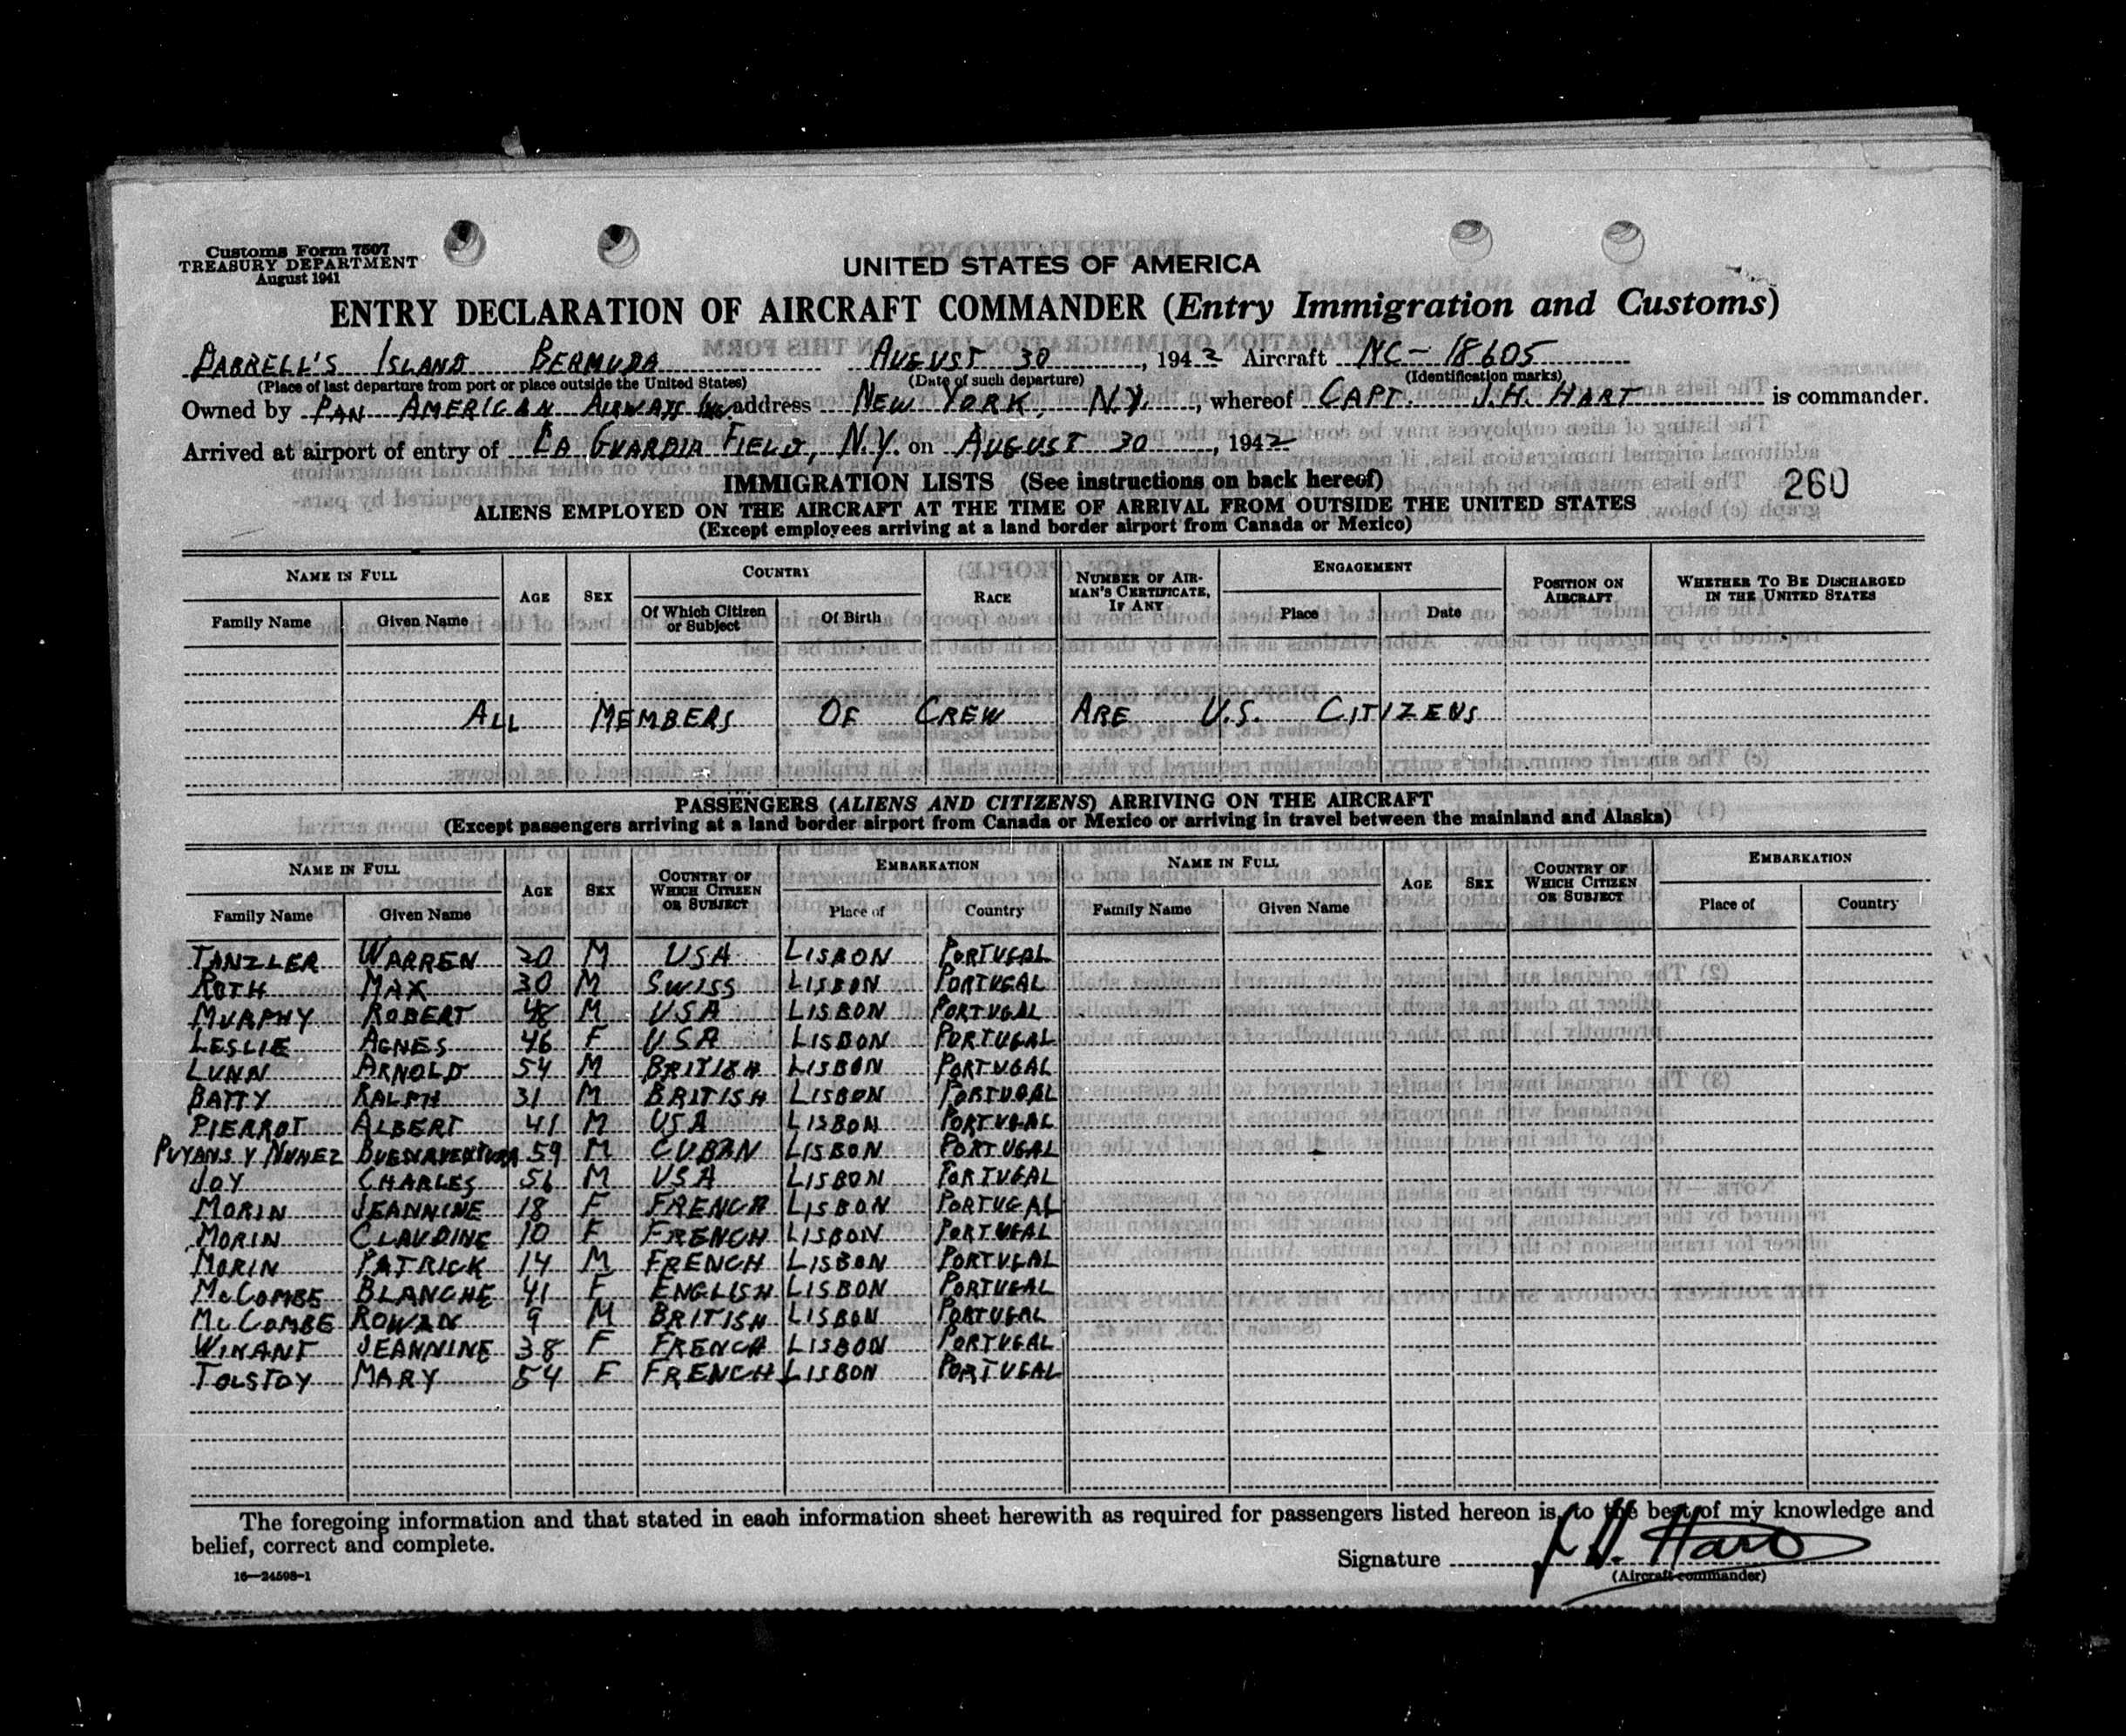 Customs Form 7507
TREASURY DEPARTMENT
August 1941
UNITED STATES OF AMERICA
ENTRY DECLARATION OF AIRCRAFT COMMANDER (Entry Immigration and Customs)
DARRELL'S ISLAND BERMUDA AUGUST 30, 1942 Aircraft NC-18605
(Place of last departure from port or place outside the United States) (Date of such departure) (Identification marks)
Owned by PAN AMERICAN AIRWAYS INC. address NEW YORK, N.Y., whereof CAPT. J.H. HART is commander.
Arrived at airport of entry of LA GUARDIA FIELD, N.Y. on AUGUST 30, 1942
IMMIGRATION LISTS (See instructions on back hereof)
260
ALIENS EMPLOYED ON THE AIRCRAFT AT THE TIME OF ARRIVAL FROM OUTSIDE THE UNITED STATES
(Except employees arriving at a land border airport from Canada or Mexico)
NAME IN FULL AGE SEX COUNTRY RACE NUMBER OF AIRMAN'S CERTIFICATE, IF ANY ENGAGEMENT POSITION ON AIRCRAFT WHETHER TO BE DISCHARGED IN THE UNITED STATES
Family Name Given Name Of Which Citizen or Subject Of Birth Place Date
ALL MEMBERS OF CREW ARE U.S. CITIZENS
PASSENGERS (ALIENS AND CITIZENS) ARRIVING ON THE AIRCRAFT
(Except passengers arriving at a land border airport from Canada or Mexico or arriving in travel between the mainland and Alaska)
NAME IN FULL AGE SEX COUNTRY OF WHICH CITIZEN OR SUBJECT EMBARKATION NAME IN FULL AGE SEX COUNTRY OF WHICH CITIZEN OR SUBJECT EMBARKATION
Family Name Given Name Place of Country Family Name Given Name Place of Country
TANZLER WARREN 30 M USA LISBON PORTUGAL
ROTH MAX 30 M SWISS LISBON PORTUGAL
MURPHY ROBERT 48 M USA LISBON PORTUGAL
LESLIE AGNES 46 F USA LISBON PORTUGAL
LUNN ARNOLD 54 M BRITISH LISBON PORTUGAL
BATTY RALPH 31 M BRITISH LISBON PORTUGAL
PIERROT ALBERT 41 M USA LISBON PORTUGAL
PUYANS Y NUNEZ BUENAVENTURA 59 M CUBAN LISBON PORTUGAL
JOY CHARLES 56 M USA LISBON PORTUGAL
MORIN JEANNINE 18 F FRENCH LISBON PORTUGAL
MORIN CLAUDINE 10 F FRENCH LISBON PORTUGAL
MORIN PATRICK 14 M FRENCH LISBON PORTUGAL
McCOMBE BLANCHE 41 F ENGLISH LISBON PORTUGAL
McCOMBE ROWAN 9 M BRITISH LISBON PORTUGAL
WINANT JEANNINE 38 F FRENCH LISBON PORTUGAL
TOLSTOY MARY 54 F FRENCH LISBON PORTUGAL
The foregoing information and that stated in each information sheet herewith as required for passengers listed hereon is, to the best of my knowledge and
belief, correct and complete.
Signature J H. Hart
(Aircraft commander)
16—24598-1